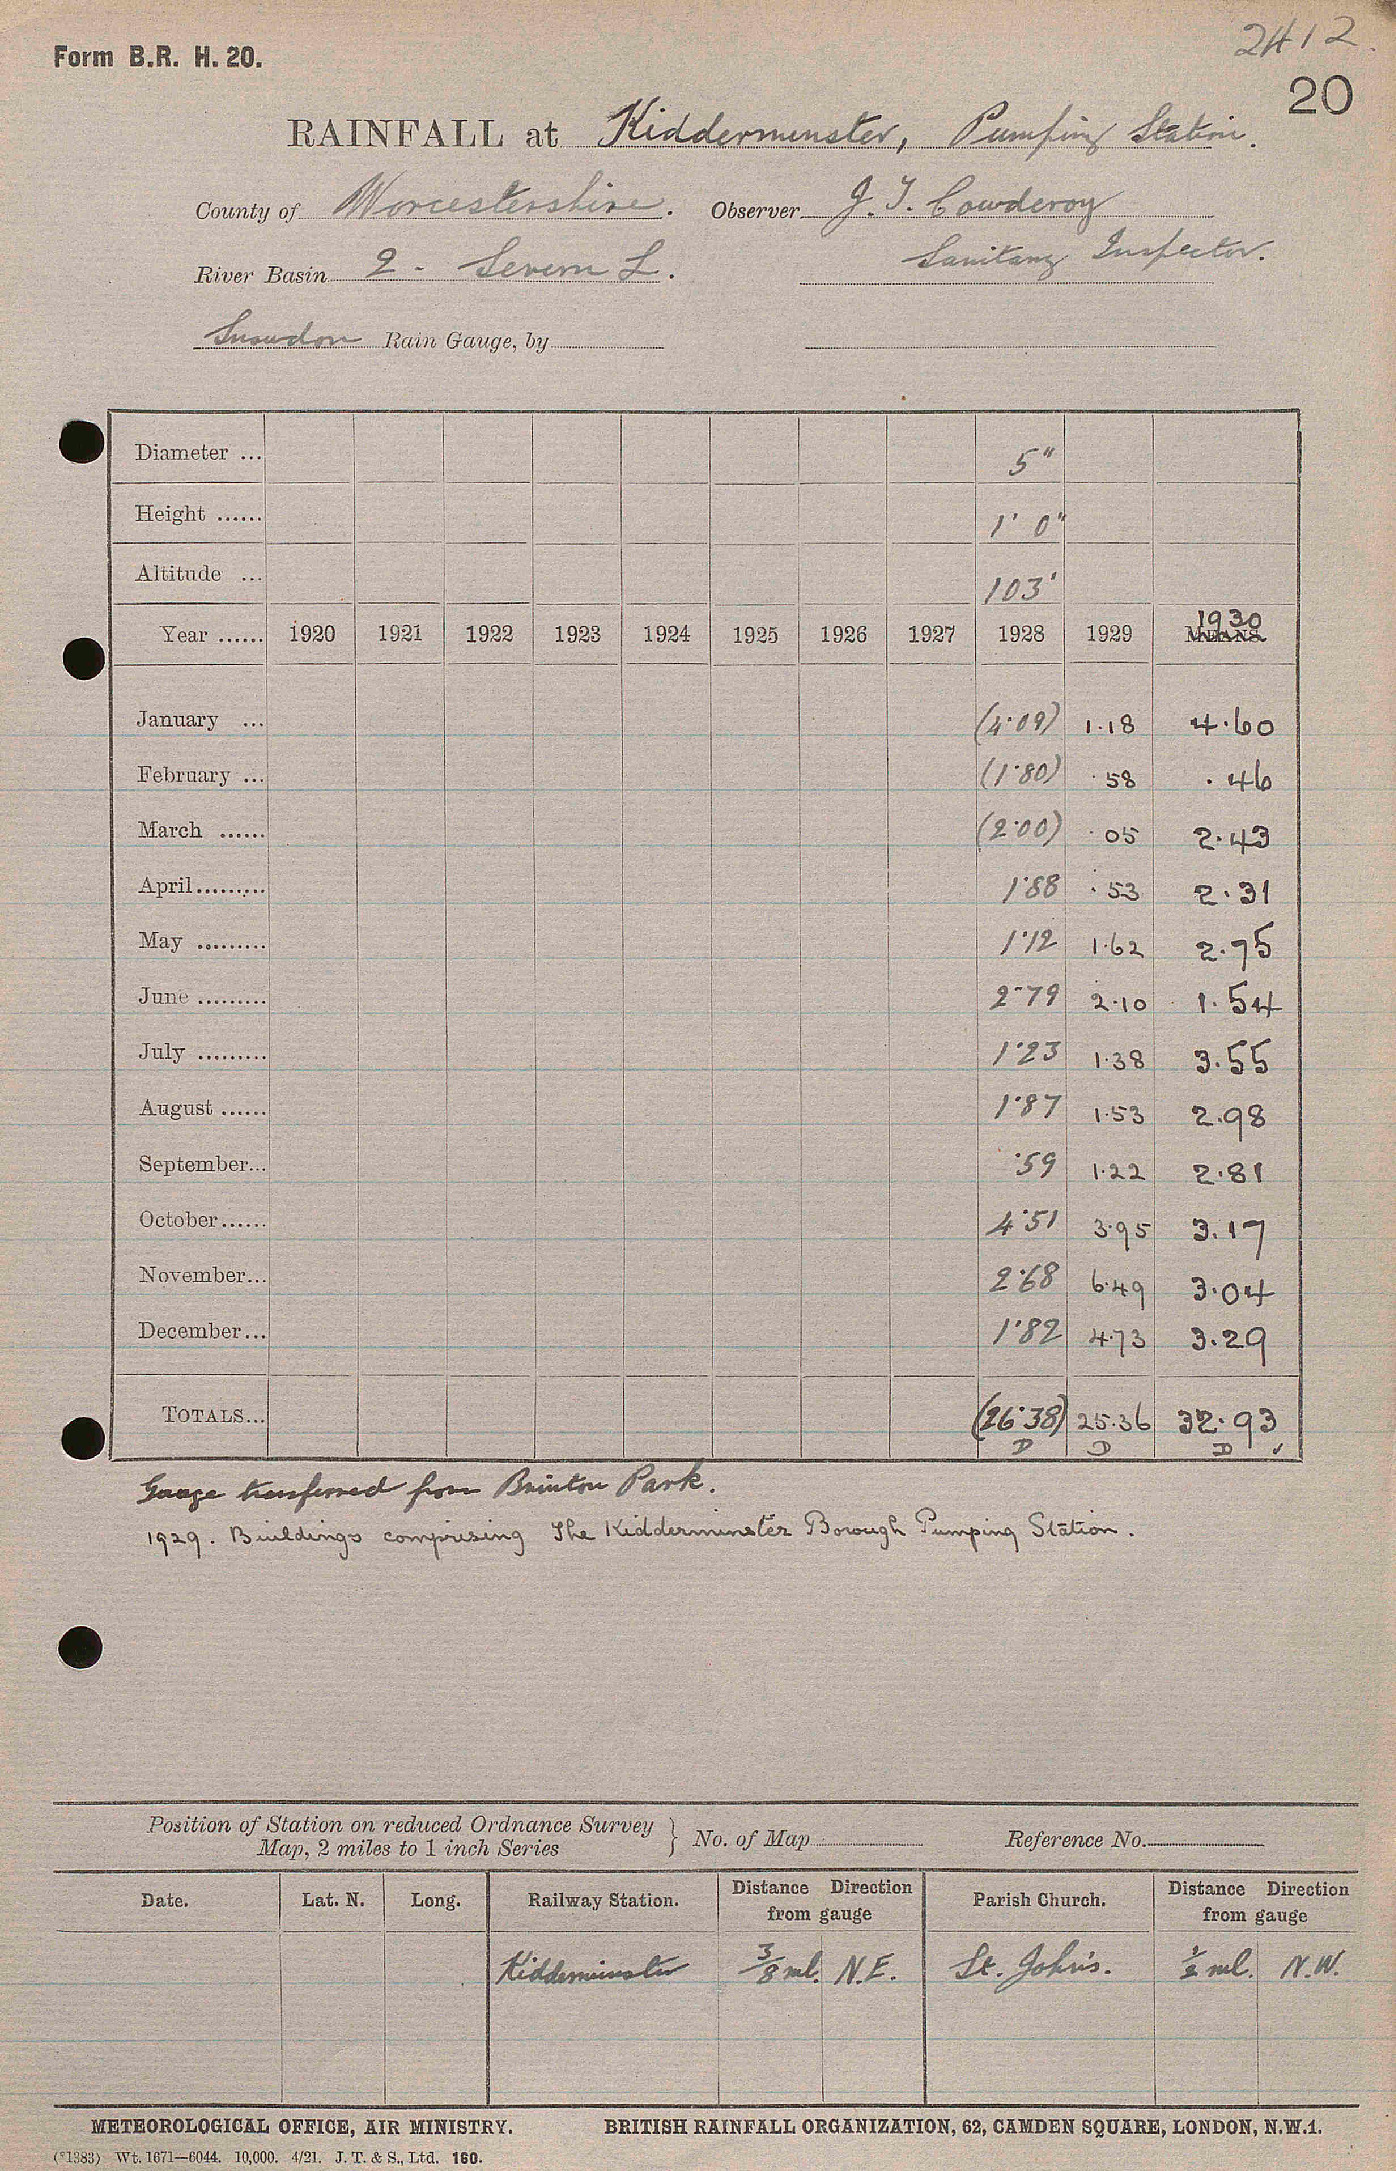 2412.
Form B.R. H. 20.
20
RAINFALL at Kidderminster, Pumping Station.
County of Worcestershire. Observer J. T. Cowderoy
River Basin 2 - Severn L. Sanitary Inspector.
Snowdon Rain Gauge, by
Diameter ... 5"
Height ...... 1' 0"
Altitude ... 103'
Year ...... 1920 1921 1922 1923 1924 1925 1926 1927 1928 1929 MEANS 1930
January ... (4·09) 1·18 4·60
February ... (1·80) ·58 ·46
March ...... (2·00) ·05 2·43
April......... 1·88 ·53 2·31
May ......... 1·12 1·62 2·75
June ......... 2·79 2·10 1·54
July ......... 1·23 1·38 3·55
August ...... 1·87 1·53 2·98
September... ·59 1·22 2·81
October...... 4·51 3·95 3·17
November... 2·68 6·49 3·04
December... 1·82 4·73 3·29
TOTALS... (26·38) 25·36 32·93
D D D ✓
Gauge transferred from Brinton Park.
1929. Buildings comprising The Kidderminster Borough Pumping Station.
Position of Station on reduced Ordnance Survey Map, 2 miles to 1 inch Series } No. of Map Reference No.
Date. Lat. N. Long. Railway Station. Distance Direction from gauge Parish Church. Distance Direction from gauge
Kidderminster 3/8 ml. N.E. St. John's. 1/2 ml. N.W.
METEOROLOGICAL OFFICE, AIR MINISTRY. BRITISH RAINFALL ORGANIZATION, 62, CAMDEN SQUARE, LONDON, N.W.1.
(*1383) Wt. 1671—6044. 10,000. 4/21. J. T. & S., Ltd. 160.